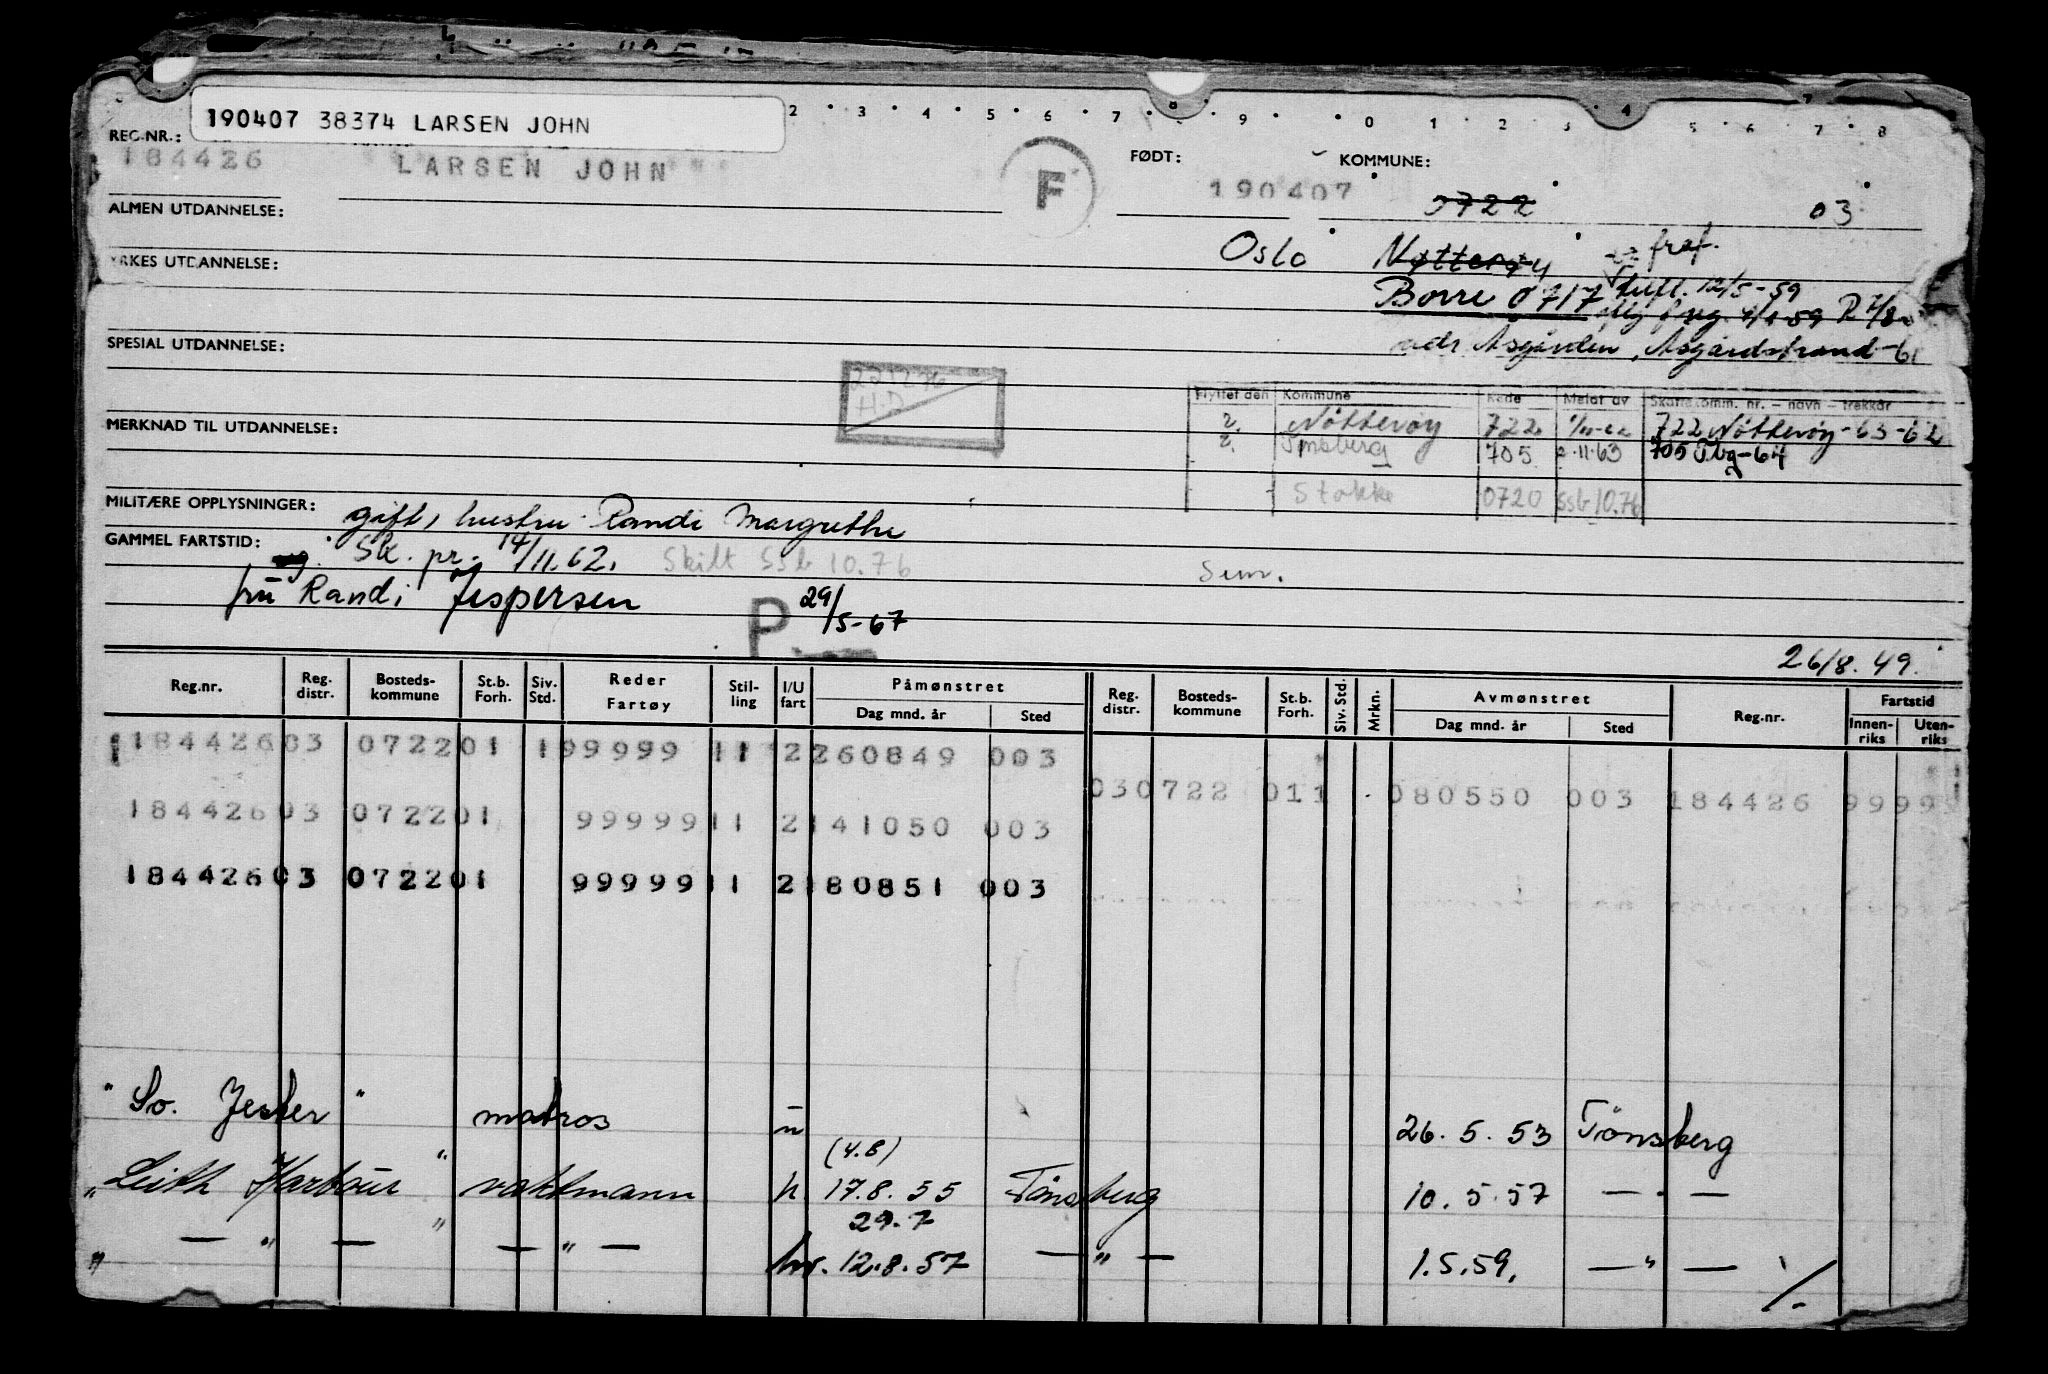 190407 38374 LARSEN JOHN
2 3 4 5 6 7 8 9 0 1 2 3 4 5 6 7 8
REG.NR.: FØDT: KOMMUNE:
184426 LARSEN JOHN F 190407 0722 03
ALMEN UTDANNELSE:
Oslo Nøtterøy fraf.
YRKES UTDANNELSE:
Borre 0717 luft. 12/5-59
adr Åsgården, Åsgårdstrand-61
SPESIAL UTDANNELSE:
221276
H.D
Flyttet den Kommune Kode Meldt av Skattekomm. nr. – navn – trekkår
2. Nøtterøy 722 722 Nøtterøy-63-62
2. Tønsberg 705 2.11.63 705 Tbg-64
Stokke 0720 SSb 10.76
MERKNAD TIL UTDANNELSE:
MILITÆRE OPPLYSNINGER: gift, hustru Randi Margrethe
GAMMEL FARTSTID: Sk. pr. 14/11.62. Skilt SSb 10.76 Sem.
fru Randi Jespersen P 29/5-67
26/8.49.
Reg.nr. Reg. distr. Bosteds-kommune St.b. Forh. Siv. Std. Reder Fartøy Stil-ling I/U fart Påmønstret Dag mnd. år Sted Reg. distr. Bosteds-kommune St.b. Forh. Siv. Std. Mrkn. Avmønstret Dag mnd. år Sted Reg.nr. Fartstid Innen-riks Uten-riks
184426 03 0722 01 1 99999 11 2 260849 003
03 0722 01 1 080550 003 184426 9999
184426 03 0722 01 99999 11 2 141050 003
184426 03 0722 01 99999 11 2 180851 003
"So. Jester" matros u 26.5.53 Tönsberg
(4.8)
"Leith Harbour" vaktmann h 17.8.55 Tönsberg 10.5.57 — " —
29.7
" — " — " — " — hv. 12.8.57 — " — 1.5.59. — " — /.